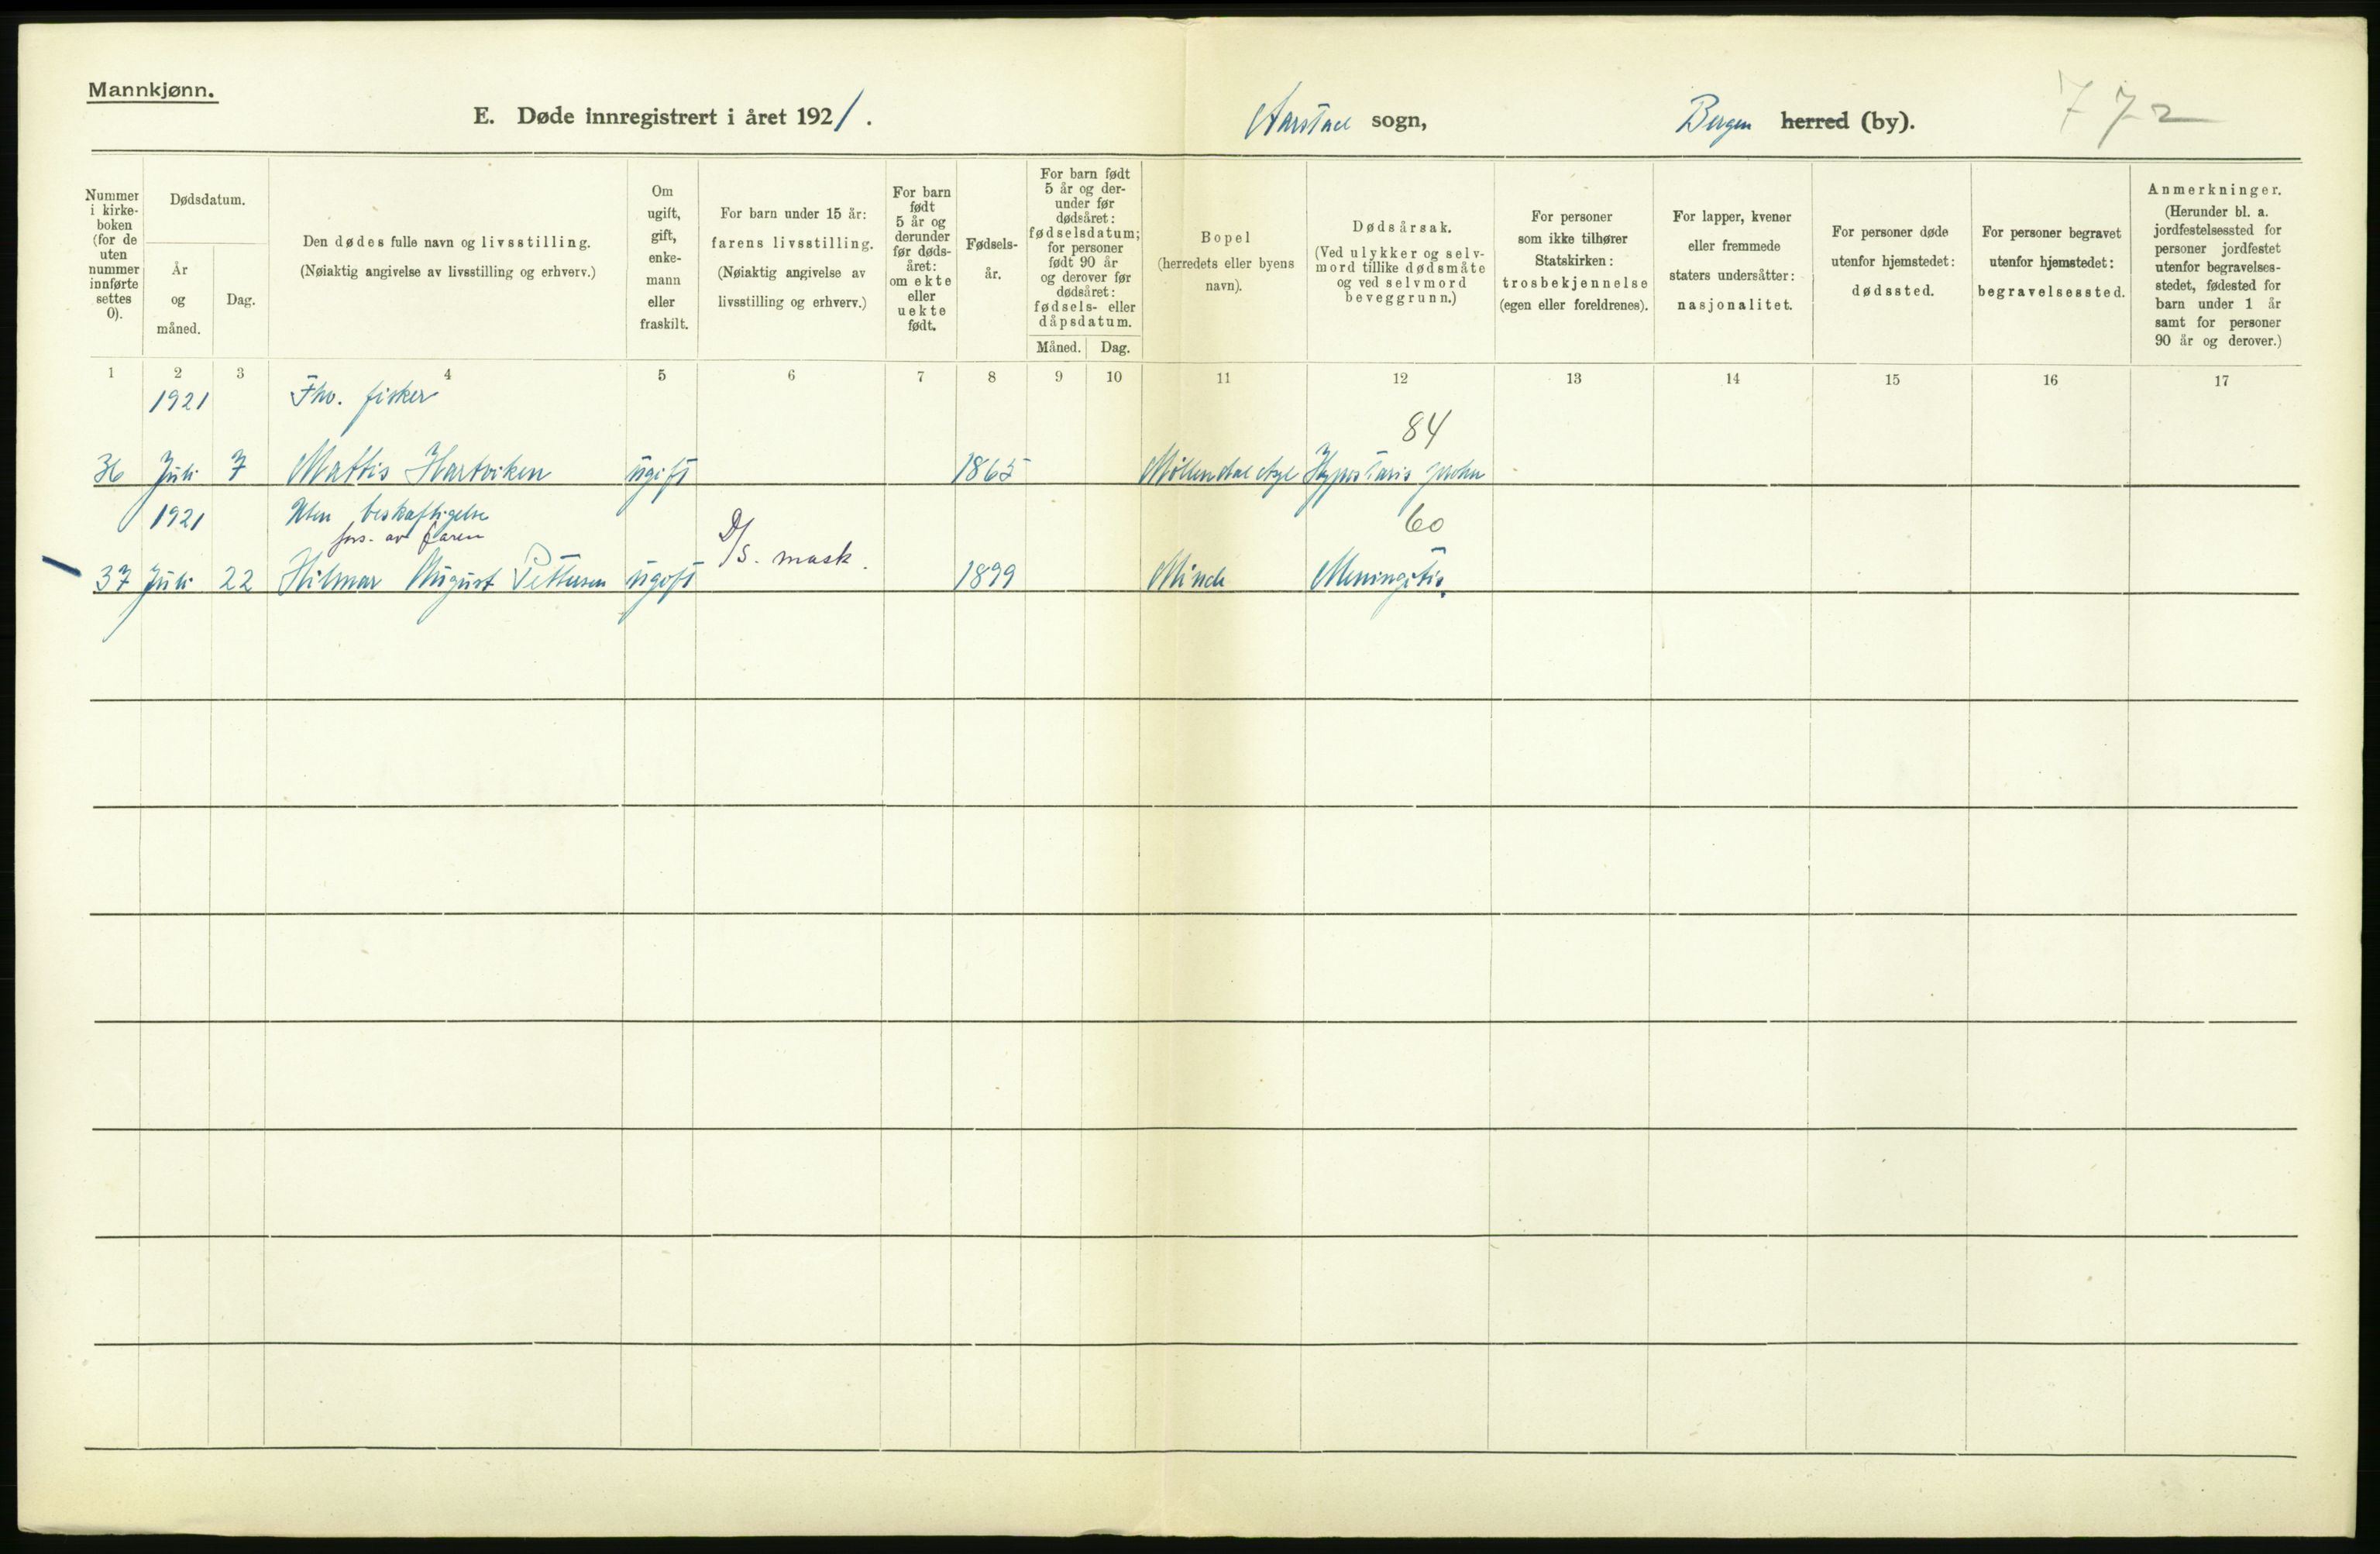 Mannkjønn.
E. Døde innregistrert i året 1921.
Aarstad sogn,
Bergen herred (by).
772
Nummer i kirke-boken (for de uten nummer innførte settes 0).
Dødsdatum.
År og måned.
Dag.
Den dødes fulle navn og livsstilling.
(Nøiaktig angivelse av livsstilling og erhverv.)
Om ugift, gift, enke-mann eller fraskilt.
For barn under 15 år: farens livsstilling. (Nøiaktig angivelse av livsstilling og erhverv.)
For barn født 5 år og derunder før døds-året: om ekte eller uekte født.
Fødsels-år.
For barn født 5 år og der-under før dødsåret: fødselsdatum; for personer født 90 år og derover før dødsåret: fødsels- eller dåpsdatum.
Måned. Dag.
Bopel (herredets eller byens navn).
Dødsårsak. (Ved ulykker og selv-mord tillike dødsmåte og ved selvmord beveggrunn.)
For personer som ikke tilhører Statskirken: trosbekjennelse (egen eller foreldrenes).
For lapper, kvener eller fremmede staters undersåtter: nasjonalitet.
For personer døde utenfor hjemstedet: dødssted.
For personer begravet utenfor hjemstedet: begravelsessted.
Anmerkninger. (Herunder bl. a. jordfestelsessted for personer jordfestet utenfor begravelses-stedet, fødested for barn under 1 år samt for personer 90 år og derover.)
1 2 3 4 5 6 7 8 9 10 11 12 13 14 15 16 17
1921 Fhv. fisker
84
36 Juli 7 Mattis Hartviken ugift 1865 Møllendal
1921 Uten beskæftigelse
fors. av faren
60
D/S. mask.
37 Juli 22 Hilmar August Pettersen ugift 1899 Minde Meningitis.